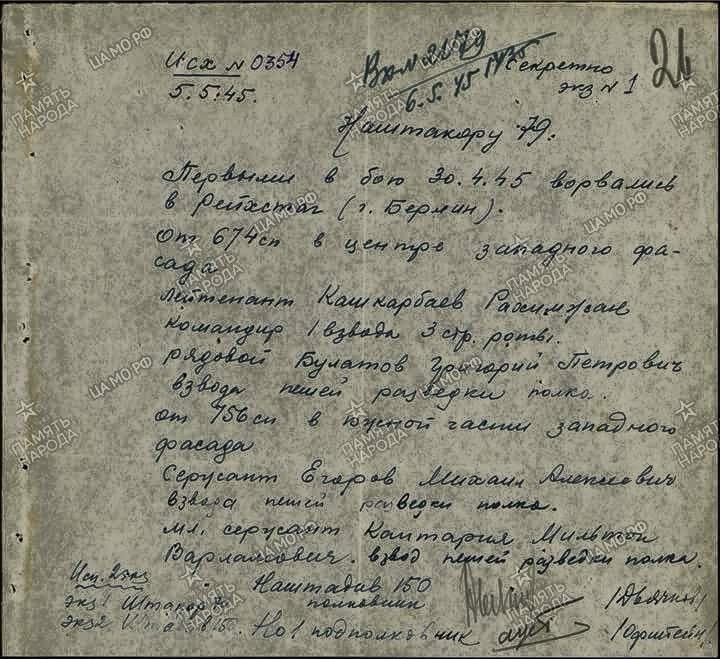 Исх № 0354
5.5.45.
Вх № 2079
6.5.45 1435
Секретно
экз № 1
26
Наштакору 79.
Первыми в бою 30.4.45 ворвались
в Рейхстаг (г. Берлин).
От 674сп в центре западного фа-
сада
Лейтенант Кашкарбаев Рахимжан
командир 1 взвода 3 стр. роты.
рядовой Булатов Григорий Петрович
взвода пешей разведки полка.
от 756сп в южной части западного
фасада
Сержант Егоров Михаил Алексеевич
взвода пешей разведки полка.
мл. сержант Кантария Мильтон
Варламович. взвод пешей разведки полка.
Исп. 2 экз
экз 1 Штакор 79
экз 2
Наштадив 150
полковник
/Дьячков/
Но 1 подполковник
ЦАМО.РФ
ПАМЯТЬ
НАРОДА